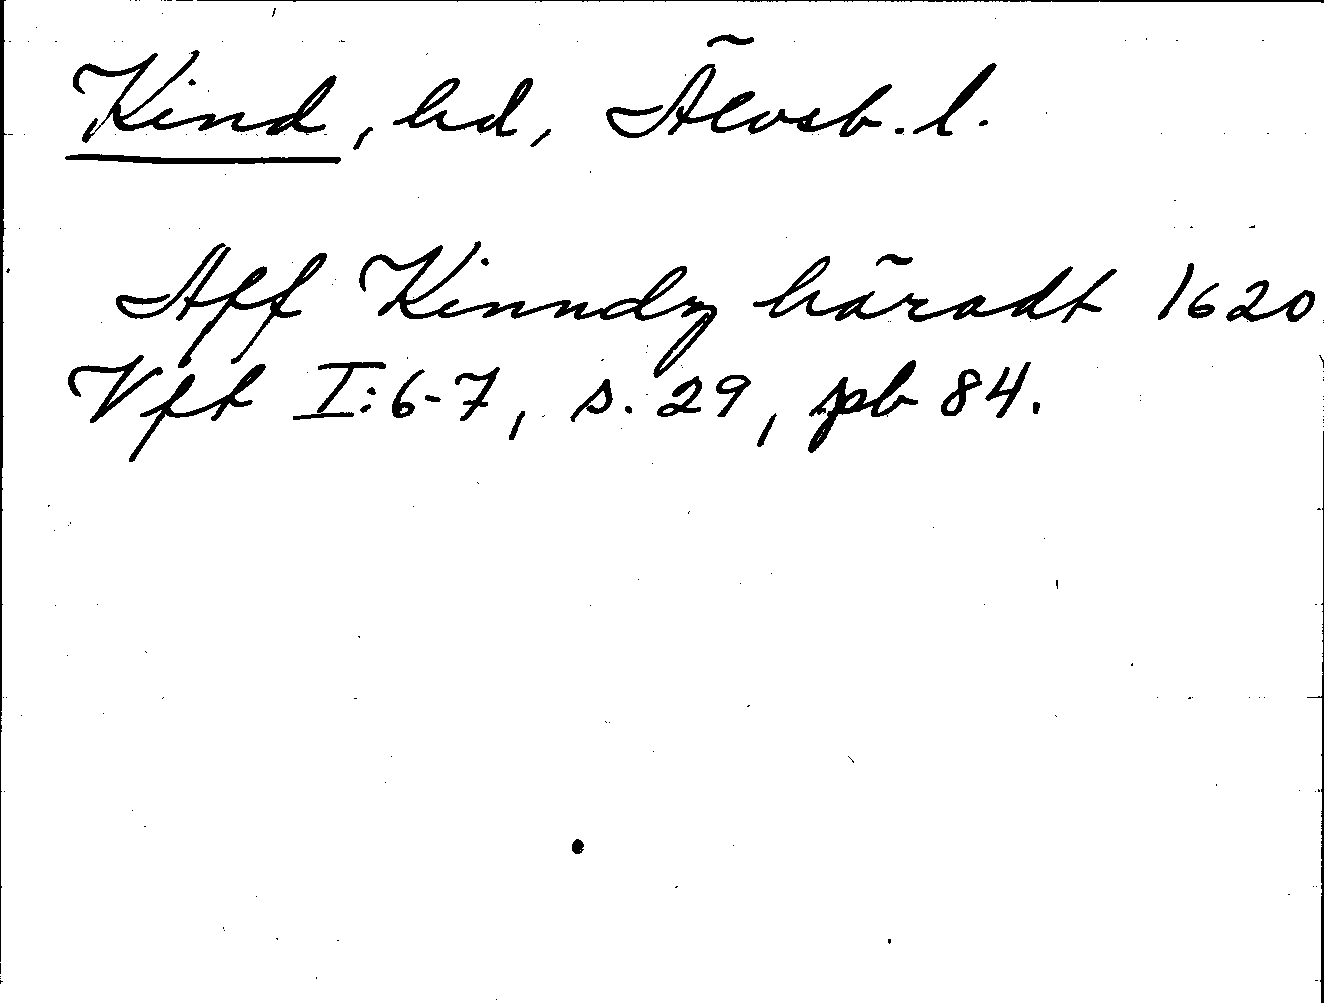 Kind, hd, Älvsb. l.
Aff Kinndz häradt 1620
Vft I:6-7, s. 29, pb 84.